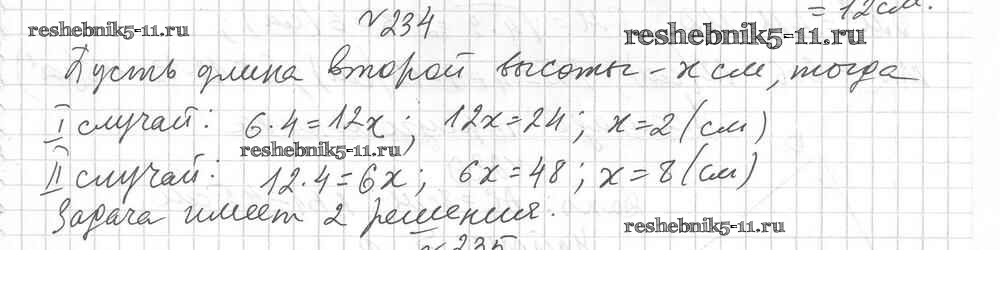 = 12 см.
№234
reshebnik5-11.ru
reshebnik5-11.ru
Пусть длина второй высоты – x см, тогда
I случай: 6·4=12x; 12x=24; x=2 (см)
reshebnik5-11.ru
II случай: 12·4=6x; 6x=48; x=8 (см)
Задача имеет 2 решения.
reshebnik5-11.ru
№235